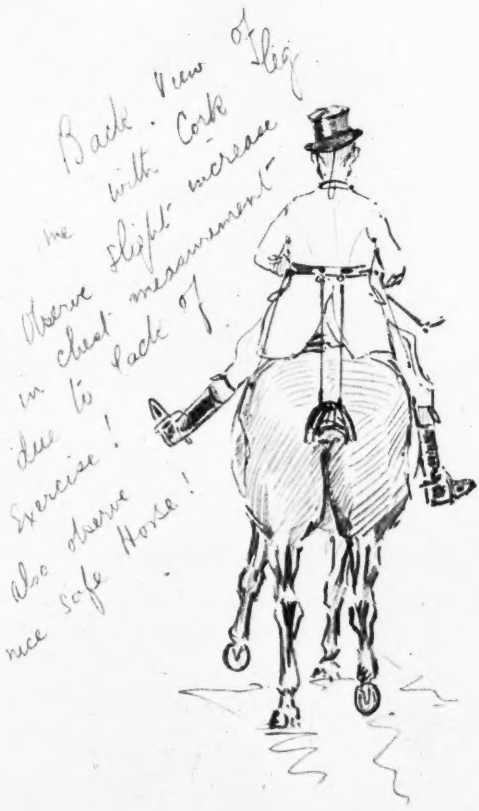 Back View of
me with Cork leg.
Observe slight increase
in chest measurement
due to lack of
Exercise!
also observe
nice safe Horse!